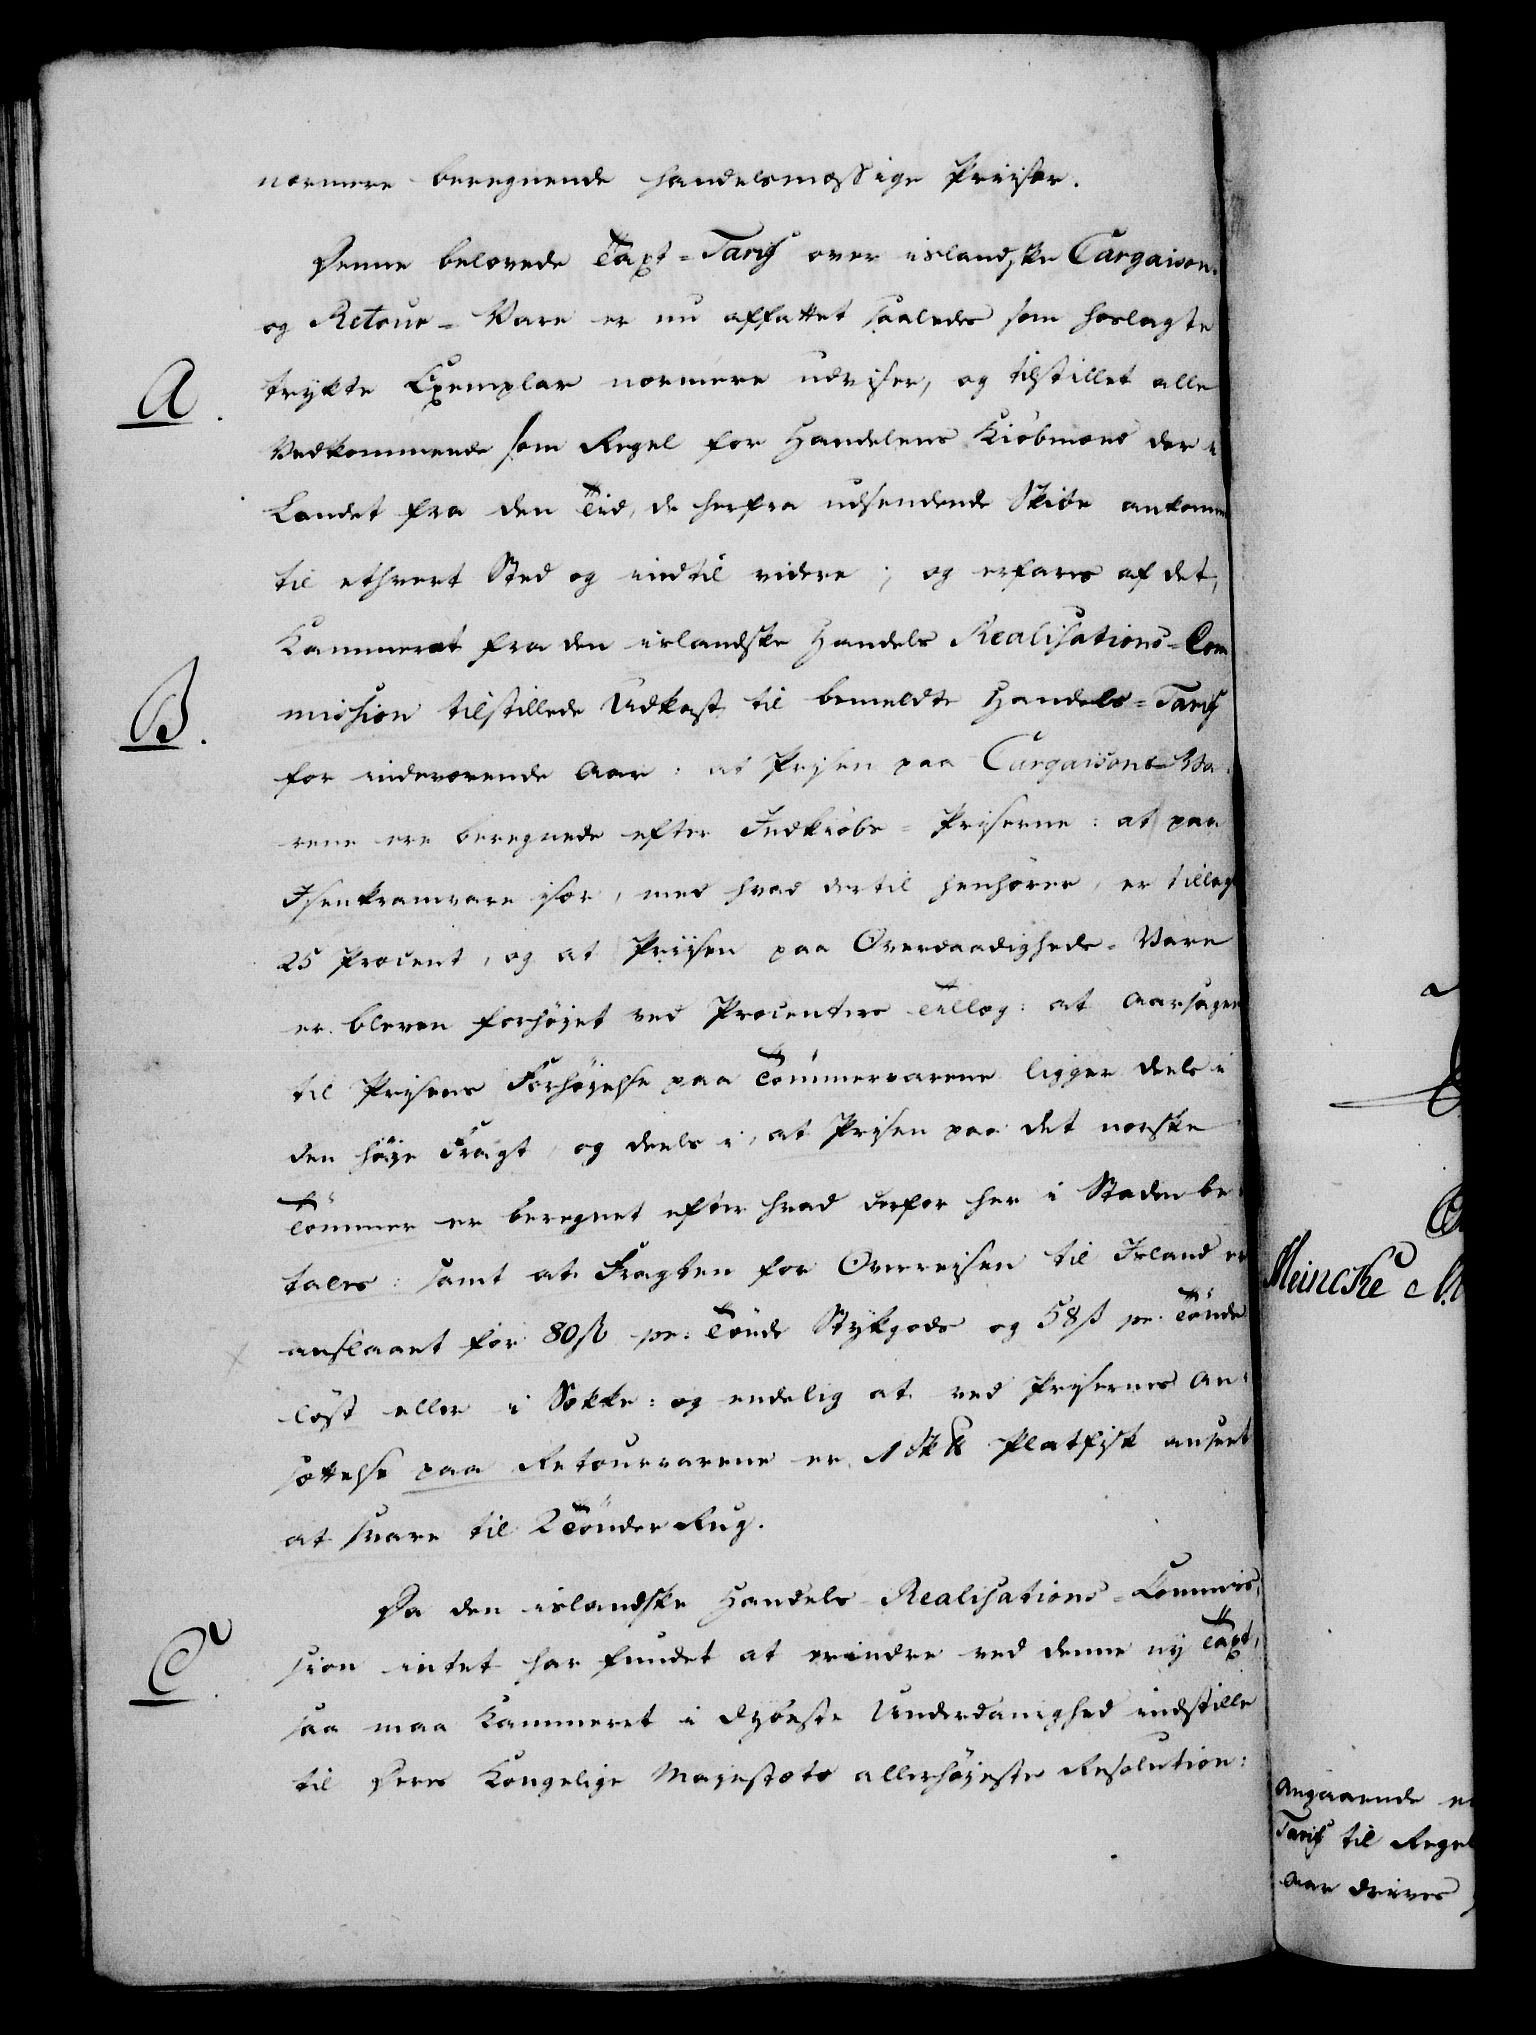 nærmere beregnende handelsmæssige Priiser.
Denne belovede Taxt-Tarif over islandske Cargaison-
og Retour-Vare er nu affattet saaledes som hoslagte
A.
trykte Exemplar nærmere udviser, og tilstillet alle
Vedkommende som Regel for Handelens Kiöbmænd der i
Landet fra den Tid, de herfra udsendende Skibe ankomm
til ethvert Sted og indtil videre; og erfares af det,
Kammeret fra den islandske Handels Realisations-Com
B.
mission tilstillede Udkast til bemeldte Handels-Tarif
for indeværende Aar: at Prisen paa Cargaisons-Va-
rene ere beregnede efter Indkiöbs-Priserne: at paa
Isenkramvare især, med hvad dertil henhörer, er tillagt
25 Procent, og at Priisen paa Overdaadigheds-Vare
er bleven forhöyet ved Procenters Tillæg: at Aarsagen
til Prisens Forhöyelse paa Tömmervarene ligger deels i
den höye Fragt, og deels i, at Prisen paa det norske
Tömmer er beregnet efter hvad derfor her i Staden be-
tales: samt at Fragten for Overreisen til Island er
anslaaet for 80 ß pr: Tönde Stykgods og 58 ß pr. Tönde
löst eller i Sække: og endelig at ved Prisernes An-
sættelse paa Retourvarene er 1 Sk℔ Platfisk anseet
at svare til 2 Tönder Rug.
Da den islandske Handels Realisations-Commis-
C.
sion intet har fundet at erindre ved denne ny Taxt,
saa maa Kammeret i dybeste Underdanighed indstille
til Deres Kongelige Majestæts allerhöyeste Resolution:
Meincke
Angaaende
Tarif til Regel
Aar drives